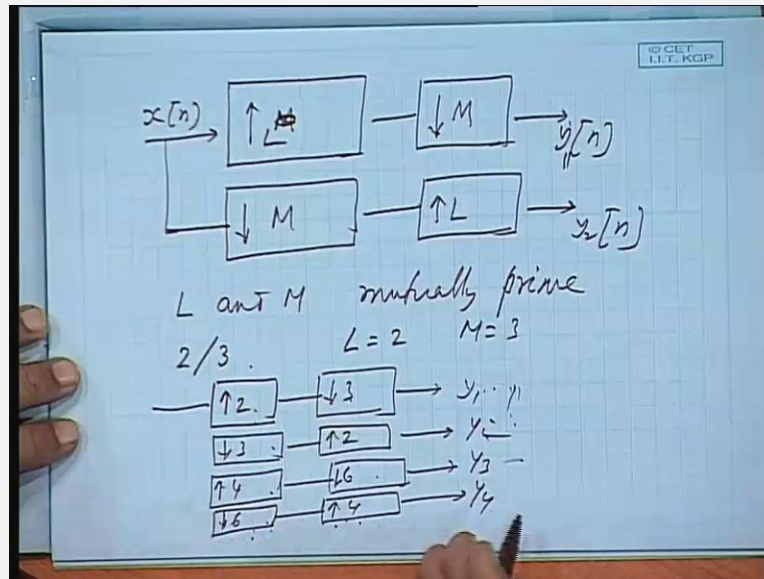 © CET
I.I.T. KGP
x[n] ↑ L ↓ M y1[n]
↓ M ↑ L y2[n]
L and M mutually prime
2/3. L = 2 M = 3
↑2 ↓3 y1
↓3 ↑2 y2
↑4 ↓6 y3
↓6 ↑4 y4